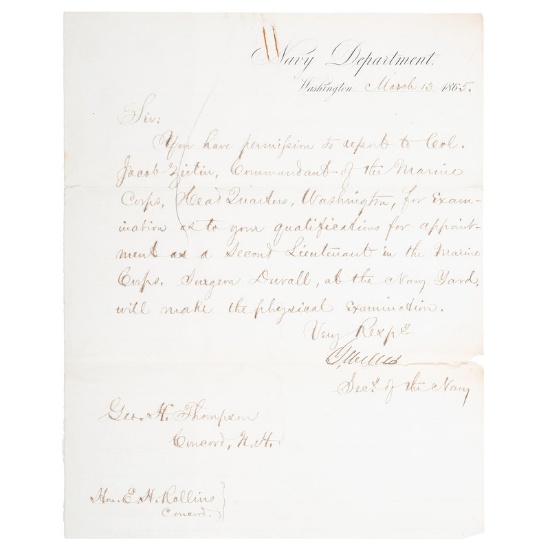 Navy Department.
Washington March 13 1865.
Sir:
You have permission to report to Col.
Jacob Zeilin, Commandant of the Marine
Corps, Head Quarters, Washington, for Exam-
ination as to your qualifications for appoint-
ment as a Second Lieutenant in the Marine
Corps. Surgeon Duvall, at the Navy Yard,
will make the physical Examination.
Very Resp'y
G Welles
Sec'y of the Navy
Geo. H. Thompson
Concord, N.H.
Hon. E. H. Rollins
Concord.